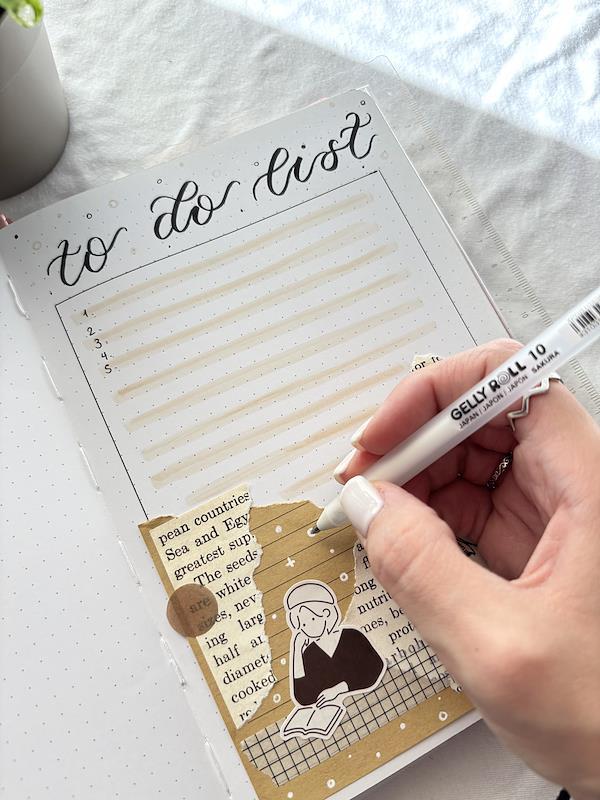 to do list
1
2
3
4
5
GELLY ROLL 10
JAPAN / JAPON / JAPÓN SAKURA
pean countries
Sea and Egy
greatest sup
The seeds
are white
sizes, nev
ing larg
half an
diamet
cooked
or
ong
nutri
nes, b
prot